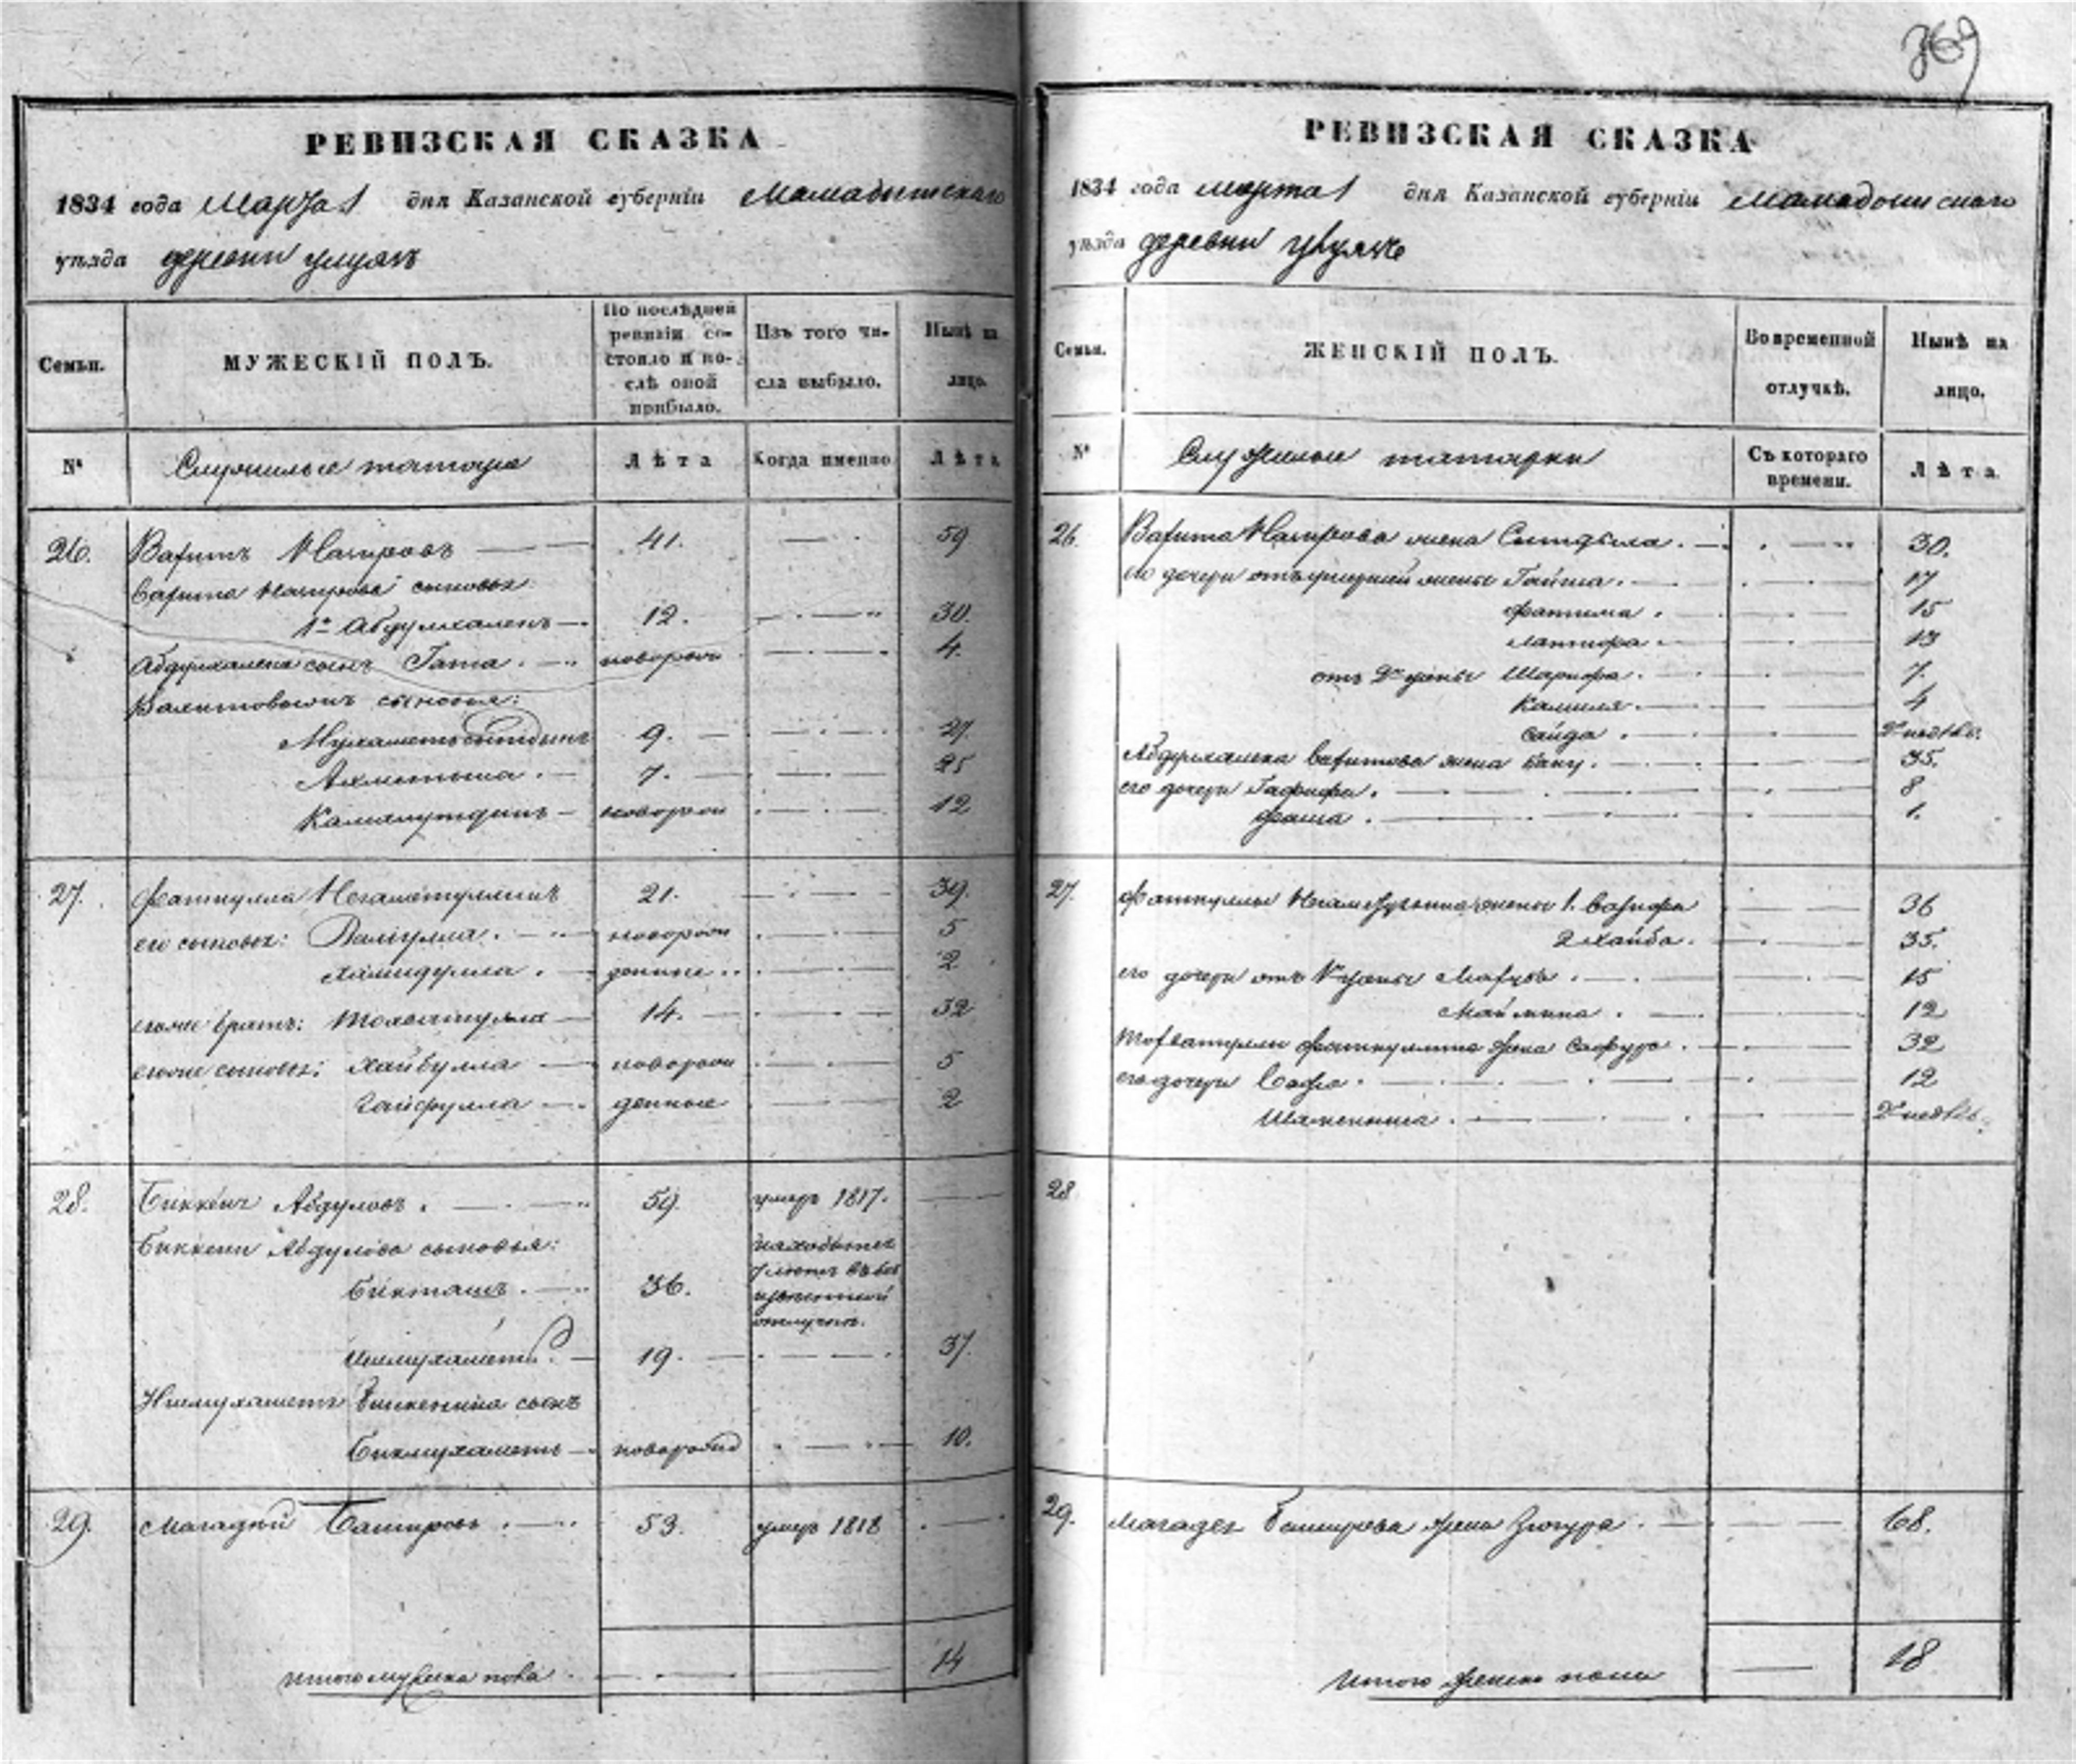 369
РЕВИЗСКАЯ СКАЗКА
1834 года марта 1 дня Казанской губерніи Мамадышскаго
уѣзда деревни
Семьи.
МУЖЕСКІЙ ПОЛЪ.
По послѣдней ревизіи состояло и послѣ оной прибыло.
Изъ того числа выбыло.
Нынѣ на лицо.
№
Служилые татара
Лѣта
Когда именно
Лѣта
26. Вагитъ Нагировъ 41. 59
Вагита Нагирова сыновья:
1й Абдулхаликъ 12. 30.
сынъ Гата новорож 4.
сыновья:
9. 27.
Ахметша 7. 25
Камалутдинъ новорож 12
27. Фаткулла Негаметуллинъ 21. 39.
его сыновья: Валиулла новорож 5
Хамидулла денные 2
егоже братъ: 14. 32
егоже сыновья: Хайбулла новорож 5
Гайфулла денные 2
28. Биккеня Абдуловъ 59. умеръ 1817.
Биккени Абдулова сыновья:
Бикташъ 36. находится
отлучкѣ.
Ишмухаметъ 19. 37.
Ишмухаметъ сынъ
Бикмухаметъ новорожд 10.
29. Магадѣй Башировъ 53. умеръ 1818
Итого мужеска пола 14
РЕВИЗСКАЯ СКАЗКА
1834 года марта 1 дня Казанской губерніи Мамадышскаго
уѣзда деревни
Семьи.
ЖЕНСКІЙ ПОЛЪ.
Во временной отлучкѣ.
Нынѣ на лицо.
№
Служилые татарки
Съ котораго времени.
Лѣта.
26. Вагита Нагирова жена 30.
его дочери отъ умершей жены Гайша 17
Фатима 15
Латифа 13
отъ 2й жены Шарифа 7.
Камиля 4
Сайда 2 недѣль.
Абдулхалика Вагитова жена Бану 35.
его дочери Гафифа 8
Фаша 1.
27. Фаткуллы жены 1. 36
2 Хайба 35.
его дочери отъ 1й жены 15
Маймина 12
жена 32
его дочери 12
2 недѣль.
28
29. Магадея Баширова жена Зюгура 68.
Итого женска пола 18